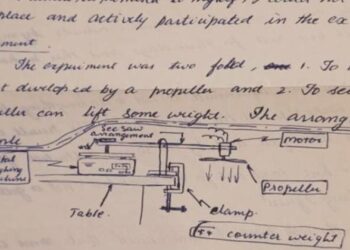 place and actively participated in the ex
ment.
The experiment was two fold, 1. To
t developed by a propeller and 2. To see
ller can lift some weight. The arrang
See saw
arrangement
Motor
Propeller
Table.
clamp.
counter weight